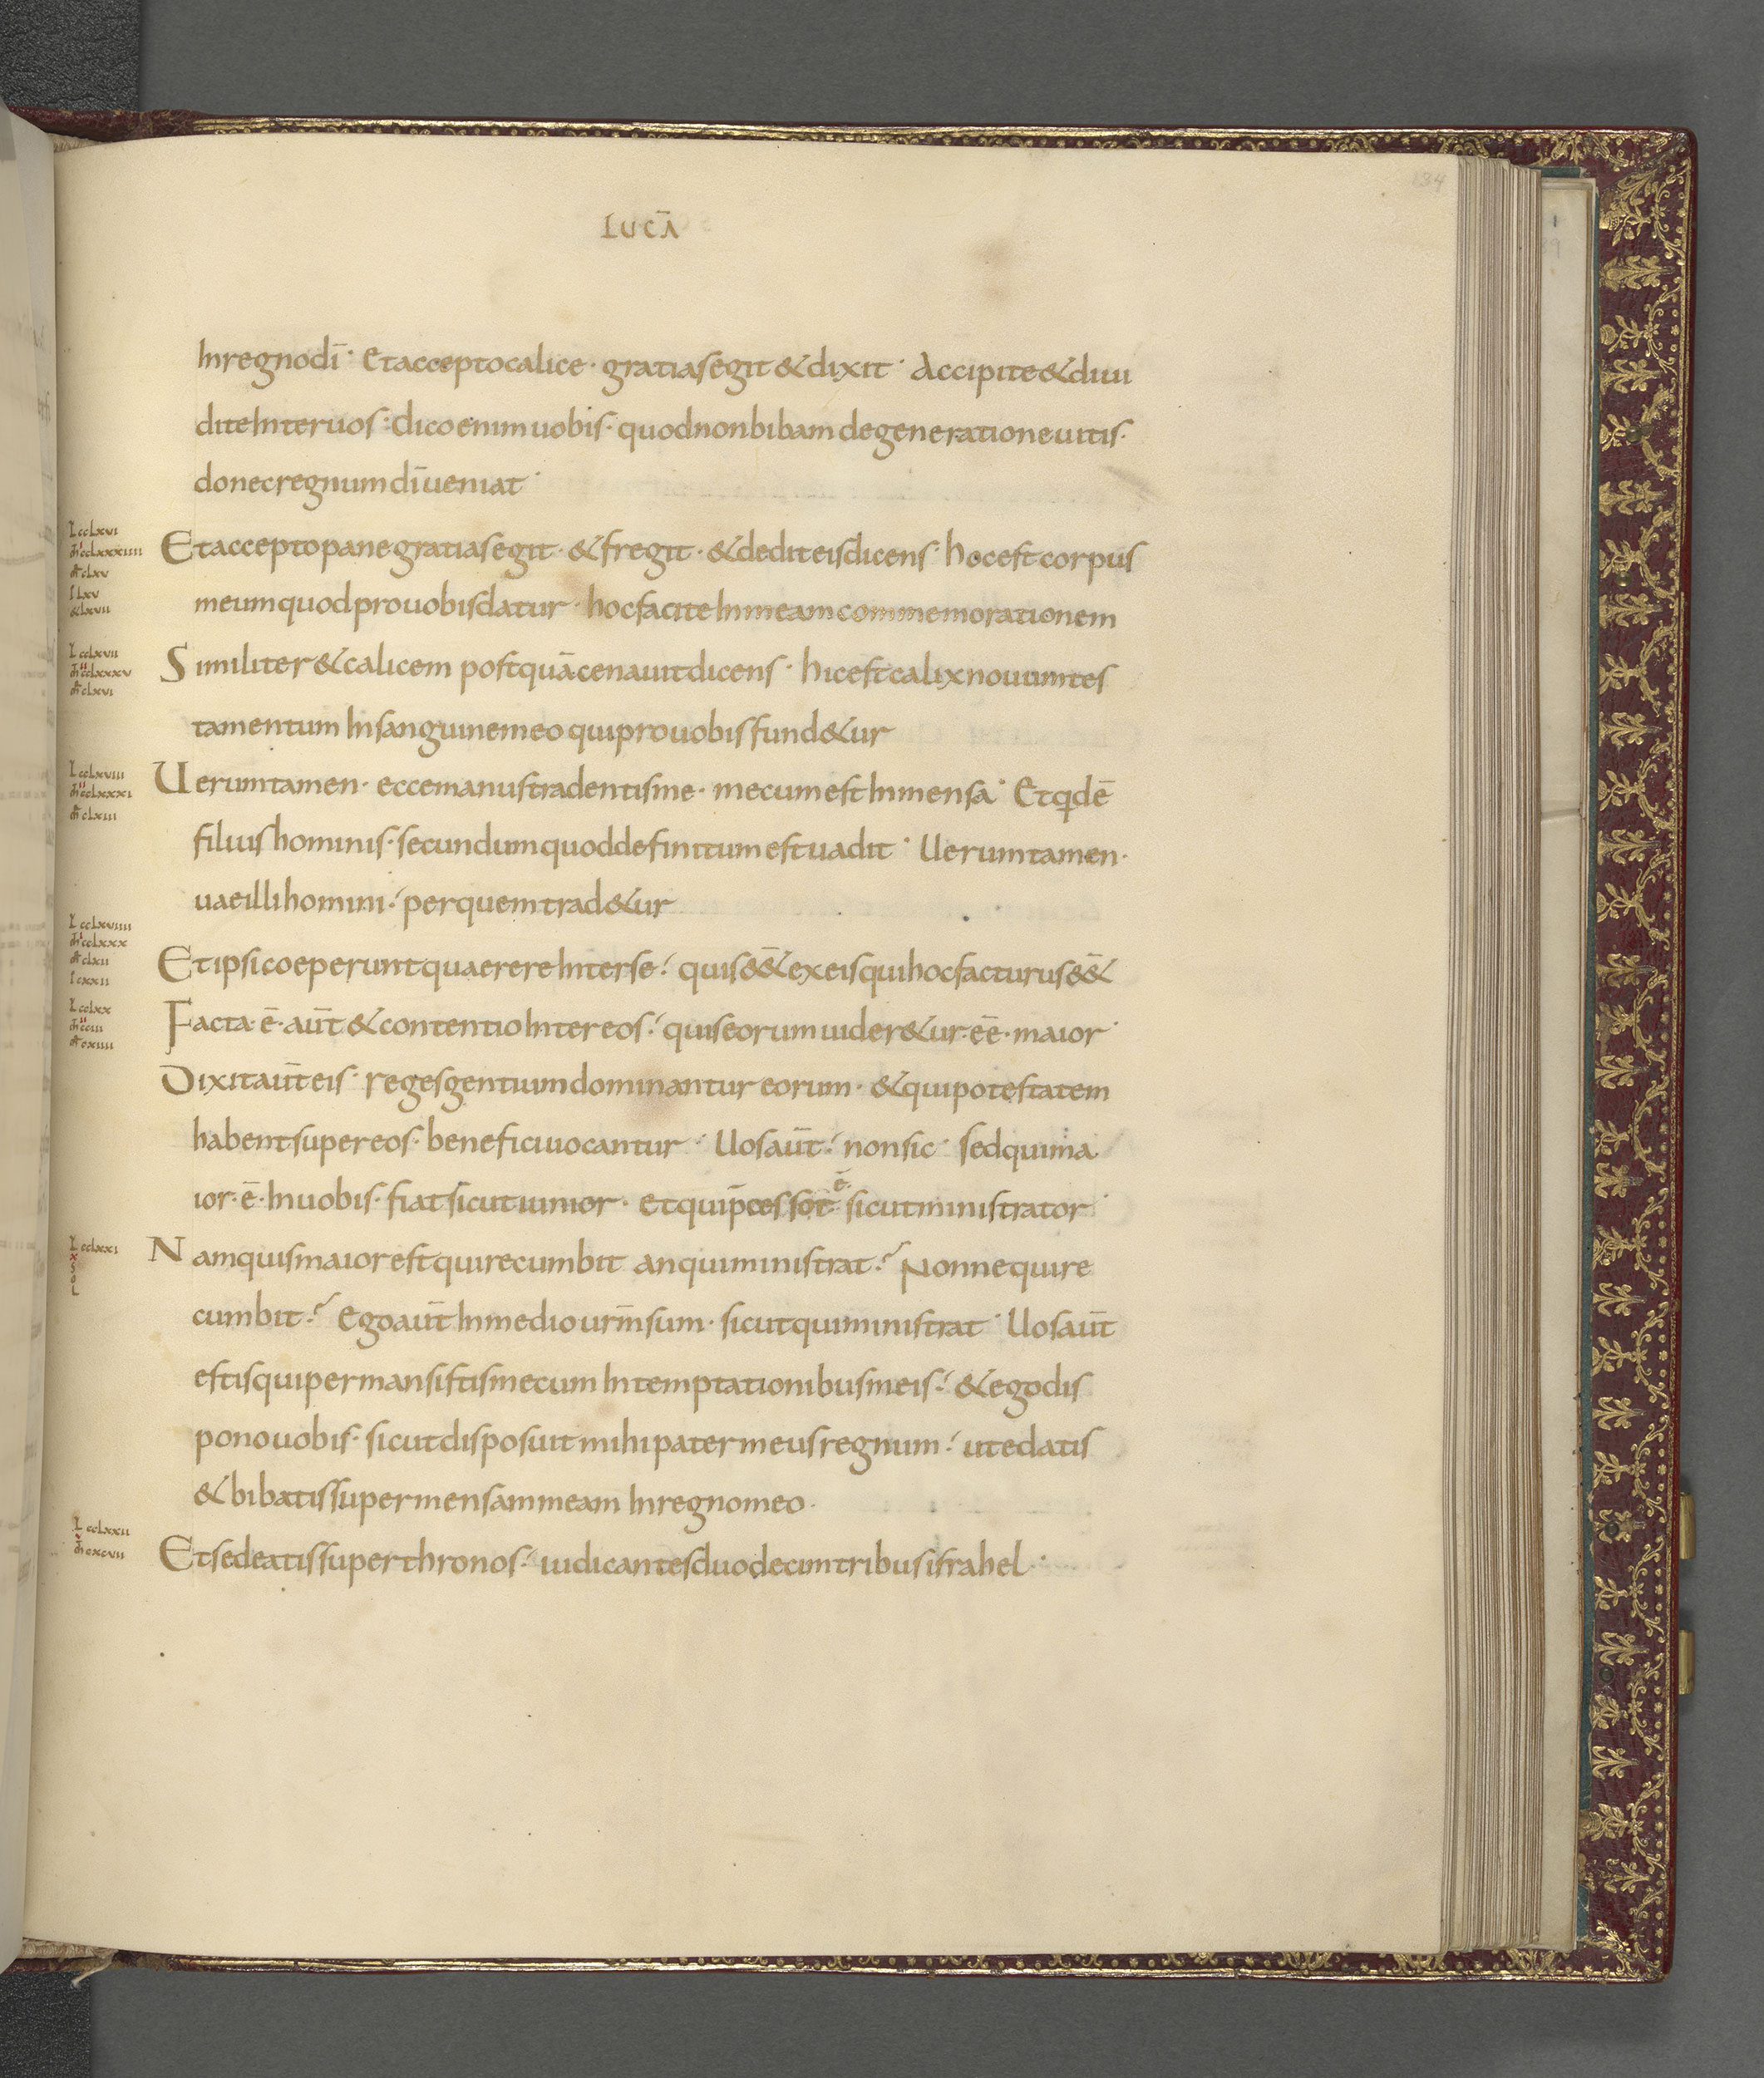 LUCĀ
134
In regno dī · Et accepto calice · gratias egit & dixit · Accipite & diui
dite Inter uos · dico enim uobis · quod non bibam de generatione uitis ·
donec regnum dī ueniat ·
L ccLxvi
m̄ ccLxxxiiii
cLxv
I Lxv
& Lxvii
Et accepto pane gratias egit · & fregit · & dedit eis dicens · hoc est corpus
meum quod pro uobis datur · hoc facite In meam commemorationem
L ccLxvii
m̄ ccLxxxv
cLxvi
Similiter & calicem postquā cenauit dicens · hic est calix nouum tes
tamentum In sanguine meo qui pro uobis fund&ur
L ccLxviii
m̄ ccLxxxi
cLxiii
Uerumtamen · ecce manus tradentis me · mecum est In mensa · Et qidē
filius hominis · secundum quod definitum est uadit · Uerumtamen ·
uae illi homini · per quem trad&ur
L ccLxviiii
m̄ ccLxxx
cLxii
I cxxii
Et ipsi coeperunt quaerere Inter se · quis eē& ex eis qui hoc facturus eē&
L ccLxx
m̄ cciii
cxiiii
Facta · ē · aūt & contentio Inter eos · quis eorum uider&ur · eē · maior ·
Dixit aūt eis · reges gentium dominantur eorum · & qui potestatem
habent super eos · benefici uocantur · Uos aūt · non sic · sed qui ma
ior · ē · In uobis · fiat sicut iunior · et qui p̄cessor ē · sicut ministrator ·
L ccLxxi
x
Nam quis maior est qui recumbit an qui ministrat? Nonne qui re
cumbit? Ego aūt In medio ur̄m sum · sicut qui ministrat · Uos aūt
estis qui permansistis mecum In temptationibus meis · & ego dis
pono uobis · sicut disposuit mihi pater meus regnum · ut edatis
& bibatis super mensam meam In regno meo ·
L ccLxxii
m̄ cxcvii
Et sedeatis super thronos · iudicantes duodecim tribus israhel ·